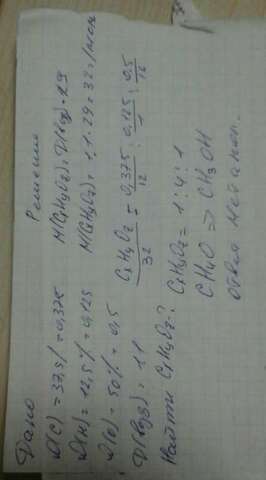 Дано
ω(C) = 37,5% = 0,375
ω(H) = 12,5% = 0,125
ω(O) = 50% = 0,5
D(возд) = 1,1
Найти CxHyOz?
Решение
M(CxHyOz) = D(возд) · 29
M(CxHyOz) = 1,1 · 29 = 32 г/моль
CxHyOz = 0,375/12 : 0,125/1 : 0,5/16
32
CxHyOz = 1 : 4 : 1
CH4O => CH3OH
Ответ метанол.